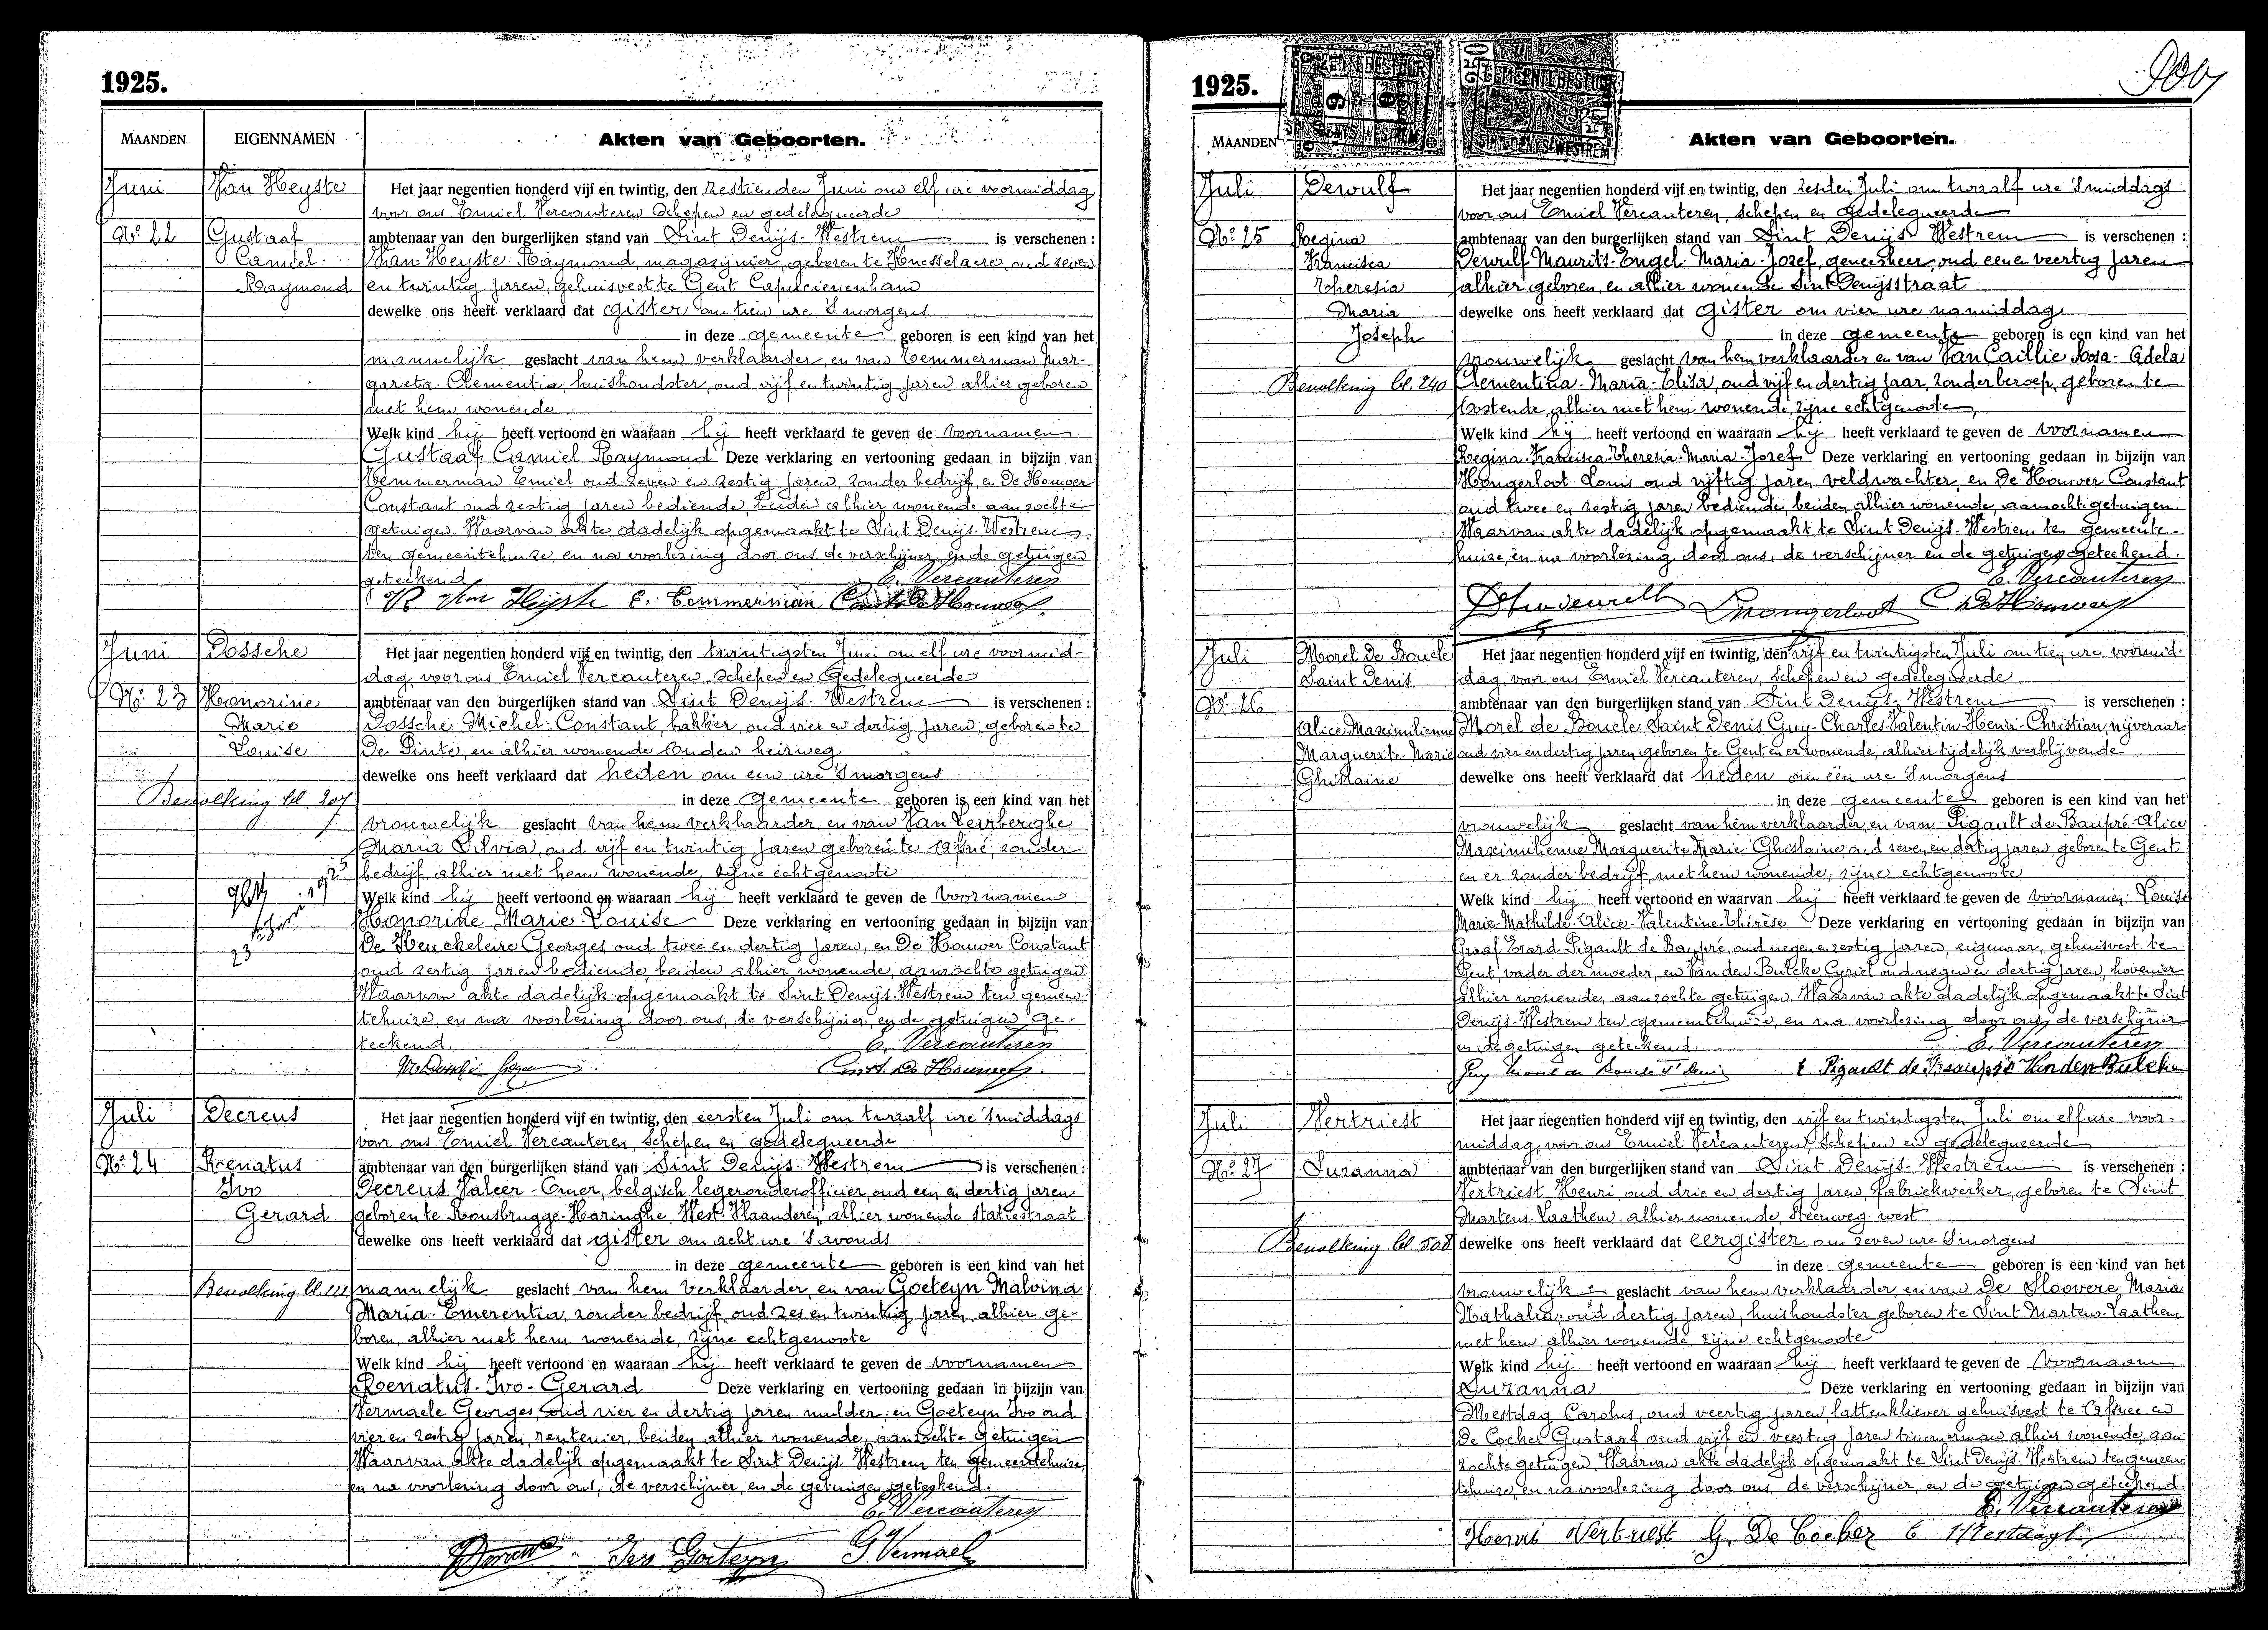 1925.
MAANDEN
EIGENNAMEN
Akten van Geboorten.
Juni
Van Heyste
Nº 22
Gustaaf
Camiel
Raymond
Het jaar negentien honderd vijf en twintig, den zestienden Juni om elf ure voormiddag
voor ons Emiel Vercauteren Schepen en gedelegueerde
ambtenaar van den burgerlijken stand van Sint Denijs-Westrem is verschenen :
Van Heyste Raymond, magazijnier, geboren te Knesselaere, oud zeven
en twintig jaren, gehuisvest te Gent Capucienenham
dewelke ons heeft verklaard dat gister om tien ure 's morgens
in deze gemeente geboren is een kind van het
mannelijk geslacht van hem verklaarder, en van Temmerman Mar-
gareta-Clementia, huishoudster, oud vijf en twintig jaren alhier geboren
met hem wonende
Welk kind hij heeft vertoond en waaraan hij heeft verklaard te geven de voornamen
Gustaaf Camiel Raymond Deze verklaring en vertooning gedaan in bijzijn van
Temmerman Emiel oud zeven en zestig jaren, zonder bedrijf, en De Houwer
Constant oud zestig jaren bediende, beiden alhier wonende aanzochte
getuigen. Waarvan akte dadelijk opgemaakt te Sint Denijs-Westrem
ten gemeentehuize, en na voorlezing door ons de verschijner, en de getuigen
geteekend
E. Vercauteren
R Van Heyste E. Temmerman Const. De Houwer
Juni
Dossche
Nº 23
Honorine
Marie
Louise
Bevolking bl. 207
23
Het jaar negentien honderd vijf en twintig, den twintigsten Juni om elf ure voormid-
dag, voor ons Emiel Vercauteren, Schepen en Gedelegueerde
ambtenaar van den burgerlijken stand van Sint Denijs-Westrem is verschenen :
Dossche Michel-Constant, bakker, oud vier en dertig jaren, geboren te
De Pinte, en alhier wonende Ouden heirweg
dewelke ons heeft verklaard dat heden om een ure 's morgens
in deze gemeente geboren is een kind van het
vrouwelijk geslacht van hem verklaarder, en van Van Leirberghe
Maria Silvia, oud vijf en twintig jaren geboren te Afsné, zonder
bedrijf, alhier met hem wonende, zijne echtgenoote
Welk kind hij heeft vertoond en waaraan hij heeft verklaard te geven de voornamen
Honorine Marie-Louise Deze verklaring en vertooning gedaan in bijzijn van
De Heuckeleire Georges oud twee en dertig jaren, en De Houwer Constant
oud zestig jaren bediende, beiden alhier wonende, aanzochte getuigen
Waarvan akte dadelijk opgemaakt te Sint Denijs-Westrem ten gemeen-
tehuize, en na voorlezing door ons, de verschijner, en de getuigen ge-
teekend.
E. Vercauteren
Const. De Houwer
Juli
Decreus
Nº 24
Renatus
Ivo
Gerard
Bevolking bl. 111
Het jaar negentien honderd vijf en twintig, den eersten Juli om twaalf ure 's middags
voor ons Emiel Vercauteren, Schepen en gedelegueerde
ambtenaar van den burgerlijken stand van Sint Denijs-Westrem is verschenen :
Decreus Valeer-Omer, belgisch legeronderofficier, oud een en dertig jaren
geboren te Rousbrugge-Haringhe, West-Vlaanderen, alhier wonende Statiestraat
dewelke ons heeft verklaard dat gister om acht ure 's avonds
in deze gemeente geboren is een kind van het
mannelijk geslacht van hem verklaarder, en van Goeteyn Malvina
Maria-Emerentia, zonder bedrijf, oud zes en twintig jaren, alhier ge-
boren, alhier met hem wonende, zijne echtgenoote
Welk kind hij heeft vertoond en waaraan hij heeft verklaard te geven de voornamen
Renatus-Ivo-Gerard Deze verklaring en vertooning gedaan in bijzijn van
Vermaele Georges, oud vier en dertig jaren mulder, en Goeteyn Ivo oud
vier en zestig jaren, rentenier, beiden alhier wonende, aanzochte getuigen
Waarvan akte dadelijk opgemaakt te Sint Denijs-Westrem ten gemeentehuize,
en na voorlezing door ons, de verschijner, en de getuigen geteekend.
E. Vercauteren
Ivo Goeteyn G. Vermaele
1925.
MAANDEN
Akten van Geboorten.
GEMEENTEBESTUUR
SINT-DENYS-WESTREM
Juli
Dewulf
Nº 25
Regina
Francisca
Theresia
Maria
Joseph
Bevolking bl. 240
Het jaar negentien honderd vijf en twintig, den zesden Juli om twaalf ure 's middags
voor ons Emiel Vercauteren, Schepen en gedelegueerde
ambtenaar van den burgerlijken stand van Sint Denijs-Westrem is verschenen :
Dewulf Maurits-Engel-Maria-Jozef, geneesheer, oud eenen veertig jaren
alhier geboren, en alhier wonende Sint Denijsstraat
dewelke ons heeft verklaard dat gister om vier ure namiddag
in deze gemeente geboren is een kind van het
vrouwelijk geslacht van hem verklaarder en van Van Caillie Rosa-Adela
Clementina-Maria-Elisa, oud vijf en dertig jaar, zonder beroep, geboren te
Oostende, alhier met hem wonende, zijne echtgenoote,
Welk kind hij heeft vertoond en waaraan hij heeft verklaard te geven de voornamen
Regina-Francisca-Theresia-Maria-Jozef Deze verklaring en vertooning gedaan in bijzijn van
Hongerloot Louis oud vijftig jaren veldwachter, en De Houwer Constant
oud twee en zestig jaren bediende, beiden alhier wonende, aanzochte getuigen.
Waarvan akte dadelijk opgemaakt te Sint Denijs-Westrem ten gemeente-
huize, en na voorlezing door ons, de verschijner en de getuigen geteekend.
E. Vercauteren
C. De Houwer
Juli
Morel De Boucle
Saint Denis
Nº 26
Alice-Maximilienne
Marguerite-Marie
Ghislaine
Het jaar negentien honderd vijf en twintig, den vijf en twintigsten Juli om tien ure voormid-
dag, voor ons Emiel Vercauteren, Schepen en gedelegueerde
ambtenaar van den burgerlijken stand van Sint Denijs-Westrem is verschenen :
Morel de Boucle Saint Denis Guy-Charles-Valentin-Henri-Christian, nijveraar
oud vier en dertig jaren, geboren te Gent en er wonende, alhier tijdelijk verblijvende
dewelke ons heeft verklaard dat heden om één ure 's morgens
in deze gemeente geboren is een kind van het
vrouwelijk geslacht van hem verklaarder, en van Pigault de Baupré Alice
Maximilienne Marguerite Marie-Ghislaine, oud zeven en dertig jaren, geboren te Gent
en er zonder bedrijf, met hem wonende, zijne echtgenoote
Welk kind hij heeft vertoond en waarvan hij heeft verklaard te geven de voornamen Louise
Marie-Mathilde-Alice-Valentine-Thérèse Deze verklaring en vertooning gedaan in bijzijn van
Graaf Erard Pigault de Baupré, oud negen en zestig jaren, eigenaar, gehuisvest te
Gent, vader der moeder, en Van den Bulcke Cyriel oud negen en dertig jaren, hovenier
alhier wonende, aanzochte getuigen. Waarvan akte dadelijk opgemaakt te Sint
Denijs-Westrem ten gemeentehuize, en na voorlezing door ons, de verschijner
en de getuigen geteekend.
E. Vercauteren
Guy Morel de Boucle St Denis E Pigault de Beaupré Vanden Bulcke
Juli
Vertriest
Nº 27
Suzanna
Bevolking bl. 508
Het jaar negentien honderd vijf en twintig, den vijf en twintigsten Juli om elf ure voor-
middag, voor ons Emiel Vercauteren, Schepen en gedelegueerde
ambtenaar van den burgerlijken stand van Sint Denijs-Westrem is verschenen :
Vertriest Henri, oud drie en dertig jaren, fabriekwerker, geboren te Sint
Martens-Laathem, alhier wonende, Steenweg-west
dewelke ons heeft verklaard dat eergister om zeven ure 's morgens
in deze gemeente geboren is een kind van het
vrouwelijk geslacht van hem verklaarder, en van De Sloovere, Maria
Nathalia, oud dertig jaren, huishoudster geboren te Sint Martens-Laathem
met hem alhier wonende, zijne echtgenoote
Welk kind hij heeft vertoond en waaraan hij heeft verklaard te geven de voornaam
Suzanna Deze verklaring en vertooning gedaan in bijzijn van
Mestdag Carolus, oud veertig jaren, lattenkliever gehuisvest te Afsnee en
De Cocker Gustaaf oud vijf en veertig jaren timmerman alhier wonende, aan-
zochte getuigen. Waarvan akte dadelijk opgemaakt te Sint Denijs-Westrem ten gemeen-
tehuize, en na voorlezing door ons, de verschijner, en de getuigen geteekend.
E. Vercauteren
Henri Vertriest G. De Cocker C Mestdagh